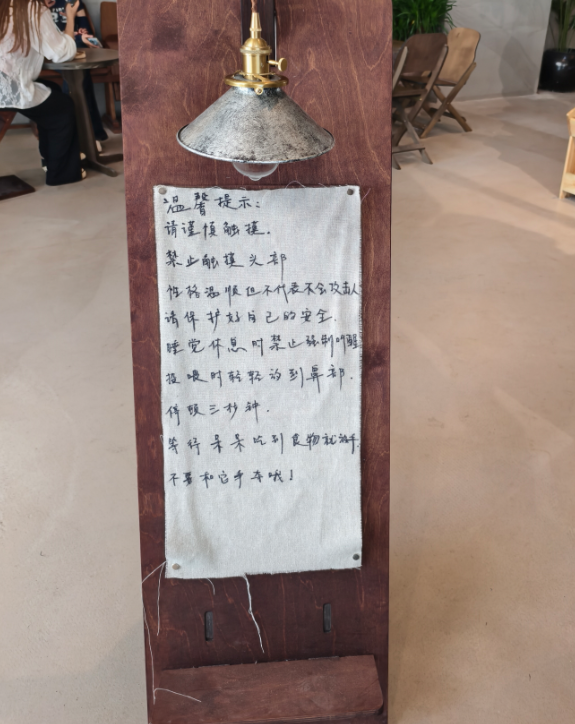 温馨提示:
请谨慎触摸.
禁止触摸头部
性格温顺但不代表不会攻击人
请保护好自己的安全.
睡觉休息时禁止强制叫醒
投喂时轻轻放到鼻部.
停顿三秒钟.
等待呆呆吃到食物就放手.
不要和它手牵哦!